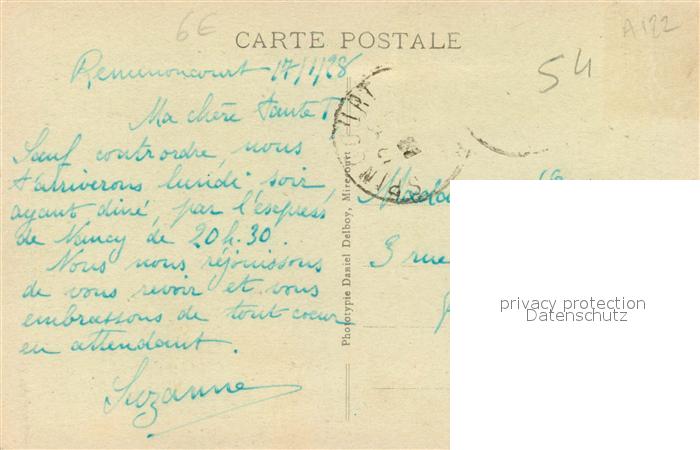 6E
A122
CARTE POSTALE
Remenoncourt 17/1/28
54
Ma chère tante
Sauf contrordre, nous
t'arriverons lundi soir,
ayant diné, par l'express
de Nancy de 20h.30.
Nous nous réjouissons
de vous revoir et vous
embrassons de tout cœur
en attendant.
Suzanne
Phototypie Daniel Delboy, Mirecourt
3 rue
privacy protection
Datenschutz